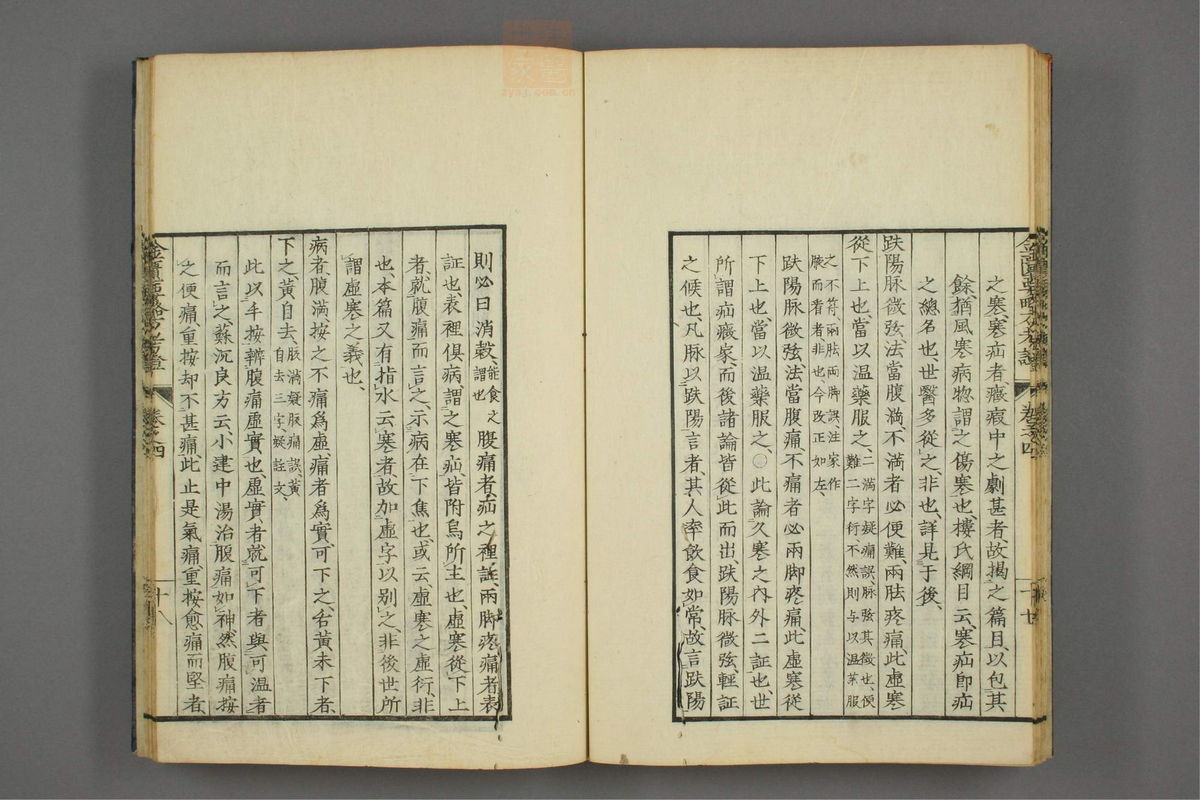 之寒寒疝者癥瘕中之劇甚者故揭之篇目以包其
餘猶風寒病惣謂之傷寒也樓氏綱目云寒疝卽疝
之總名也世醫多從之非也詳見于後
趺陽脉微弦法當腹滿不滿者必便難兩胠疼痛此虛寒
從下上也當以温藥服之二滿字疑痛誤脉弦其徵也便
難二字衍不然則与以温藥服
之不符兩胠兩脚誤注家作
厥而者者非也今改正如左
趺陽脉微弦法當腹痛不痛者必兩脚疼痛此虛寒從
下上也當以温藥服之○此論久寒之內外二証也世
所謂疝癥家而後諸論皆從此而出趺陽脉微弦輕証
之候也凡脉以趺陽言者其人率飲食如常故言趺陽
則必曰消穀能食之
謂也
腹痛者疝之裡証兩脚疼痛者表
証也表裡俱病謂之寒疝皆附烏所主也虛寒從下上
者就腹痛而言之示病在下焦也或云虛寒之虛衍非
也本篇又有指水云寒者故加虛字以别之非後世所
謂虛寒之義也
病者腹滿按之不痛爲虛痛者爲實可下之舌黃未下者
下之黃自去脹滿疑脹痛誤黃
自去三字疑註文
此以手按辨腹痛虛實也虛實者就可下者與可温者
而言之蘇沉良方云小建中湯治腹痛如神然腹痛按
之便痛重按却不甚痛此止是氣痛重按愈痛而堅者
卷之四
十八